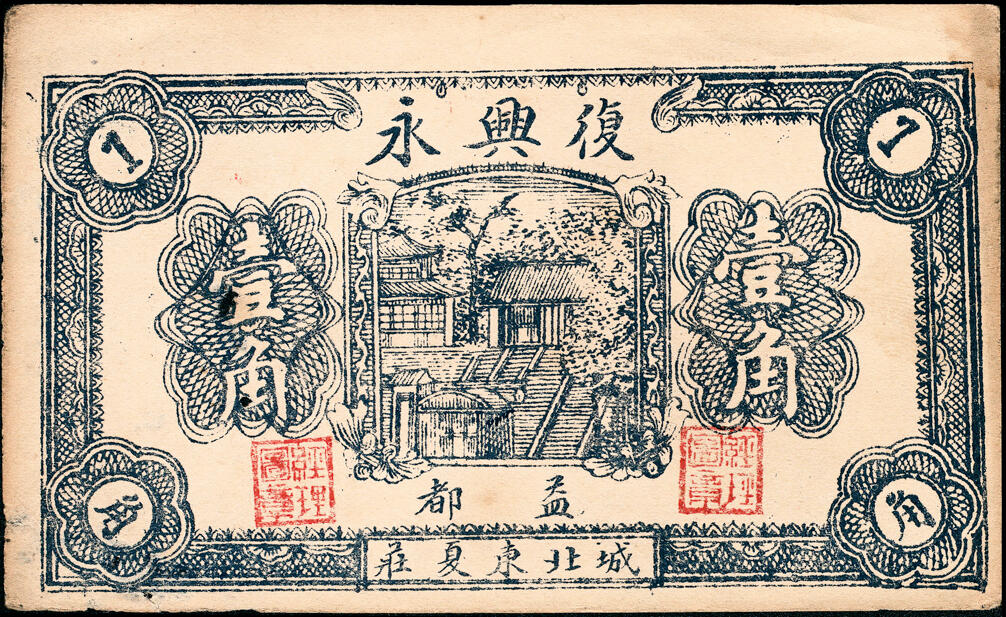 復興永
1
1
壹角
壹角
經理圖章
經理圖章
益都
角
角
城北東夏莊